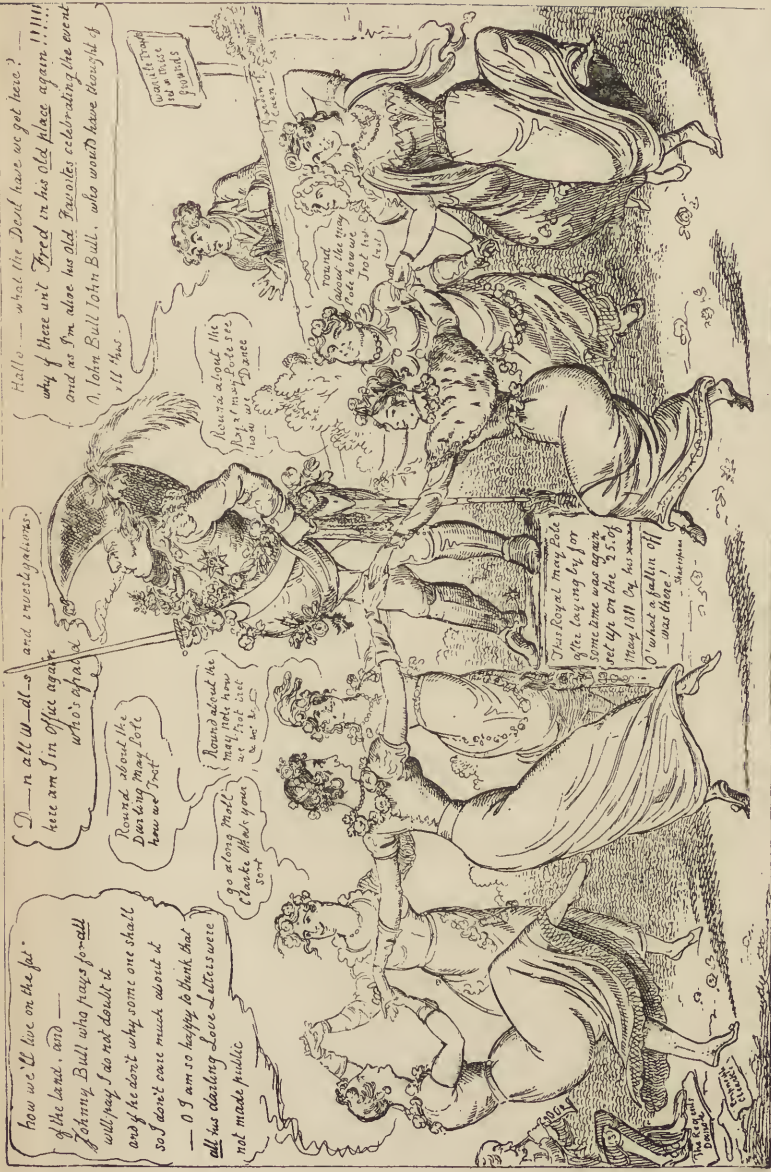 how we'll live on the fat
of the land, and —
Johnny Bull who pays for all
will pay I do not doubt it
and if he don't why some one shall
so I don't care much about it
— O I am so happy to think that
all his darling Love Letters were
not made public
D—n all W—dl—s and investigations
here am I in office again
who's afraid
Hallo — what the Devil have we got here? —
why if there isn't Fred in his old place again !!!!!!
and as I'm alive his old Favorites celebrating the event
John Bull John Bull. who would have thought of
all this.
Round about the
Darling may Pole
how we Trot
go along Moll
Clarke thats your
sort
Round about the
may pole how
we trot trot
Round about the
Royal may Pole see
how we Dance
round
about the may
Pole how we
trot tro
trot
Traps
set in these
Grounds
This Royal may Pole
after laying by for
some time was again
set up on the 25. of
May 1811 by his
O' what a fallin off
was there!
Shakespeare
The Regents